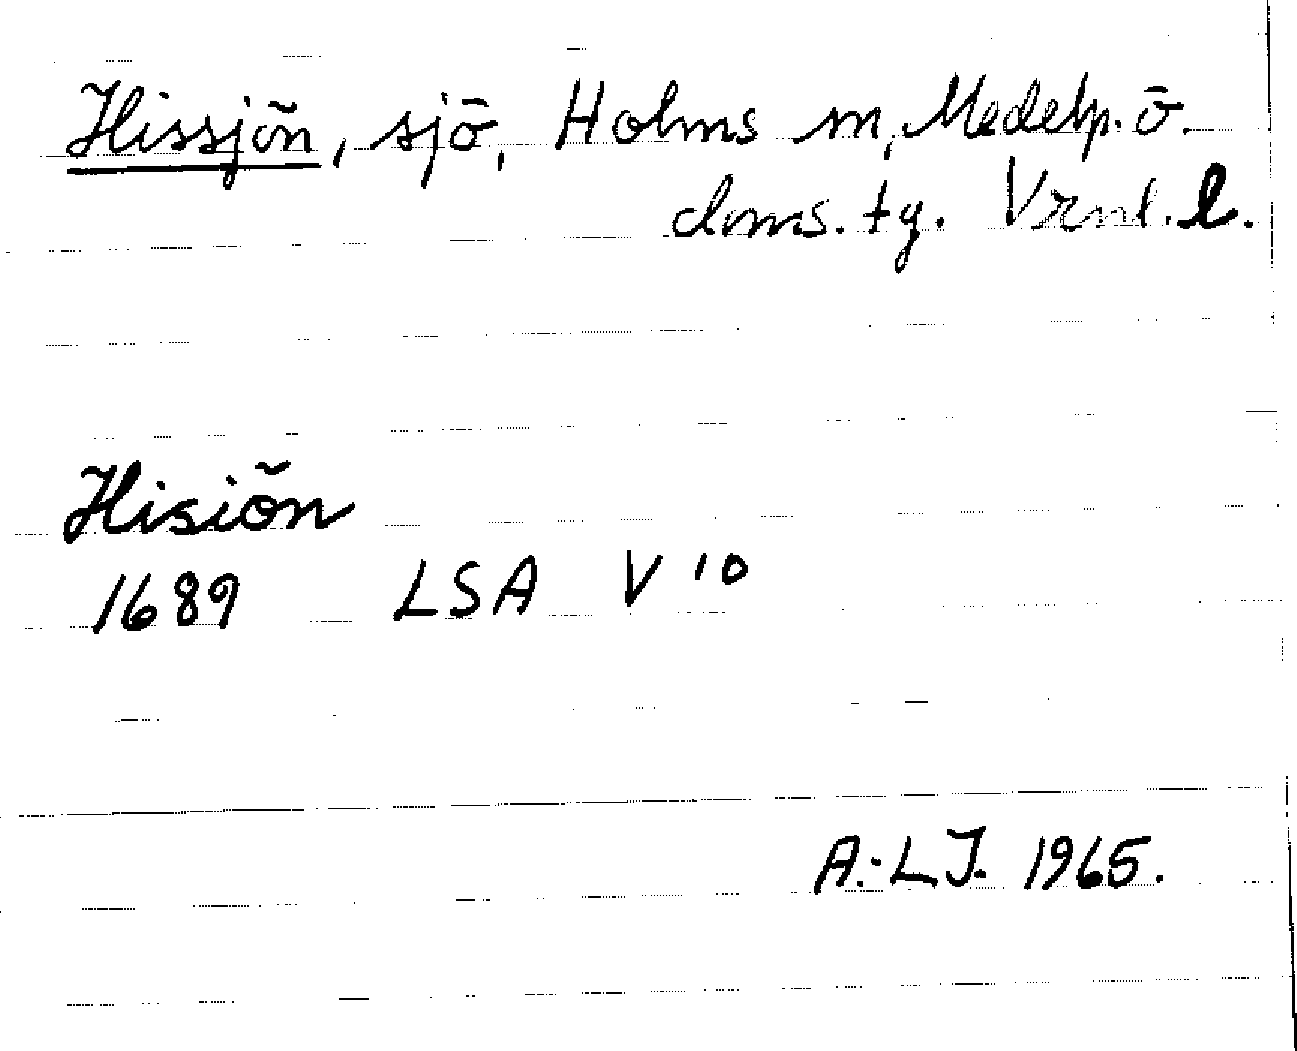 Hissjön, sjö, Holms sn, Medelp. ö.
doms. tg. Vrnl. l.
Hisiön
1689 LSA V 10
A.-L.J. 1965.